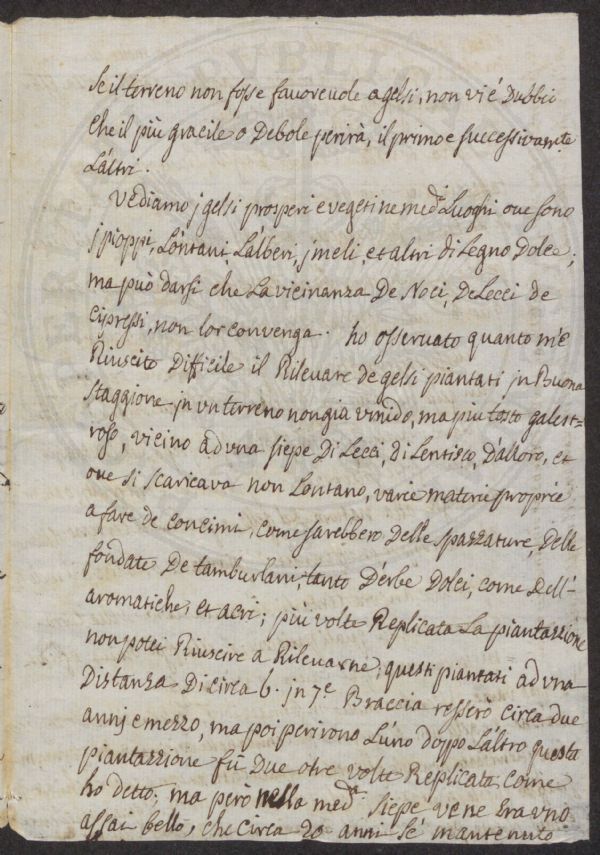 Se il terreno non fosse favorevole a gelsi, non vi é Dubbio
che il più gracile o Debole perirà, il primo e successivamte
L'altri.
Vediamo j gelsi prosperi e vegeti ne medi Luoghi ove sono
j pioppi, Lóntani, L'alberi, j meli, et altri di Legno Dolce;
ma può darsi che La vicinanza De Noci, De Lecci de
Cipressi, non lor convenga. ho osservato quanto m'è
Riuscito Difficile il Rilevare de gelsi piantati jn Buona
staggione jn un terreno non già umido, ma più tosto galest=
roso, vicino ad vna siepe Di Lecci, di Lentisco, D'alloro, et
ove si scaricava non Lontano, varie materie proprie
a fare de concimi, come sarebbero Delle spazzature, Delle
fondate De tamburlani, tanto D'erbe Dolci, come Dell'
aromatiche, et acri; più volte Replicata La piantazzione
non potei Riuscire a Rilevarne; questi piantati ad vna
Distanza Di circa 6. jn 7e Braccia ressero circa due
annj e mezzo, ma poi perirono L'uno doppo L'altro questa
piantazzione fù Due o tre volte Replicata come
ho detto, ma però nella meda siepe ve ne era vno
assai bello, che circa 20 anni s'é mantenuto